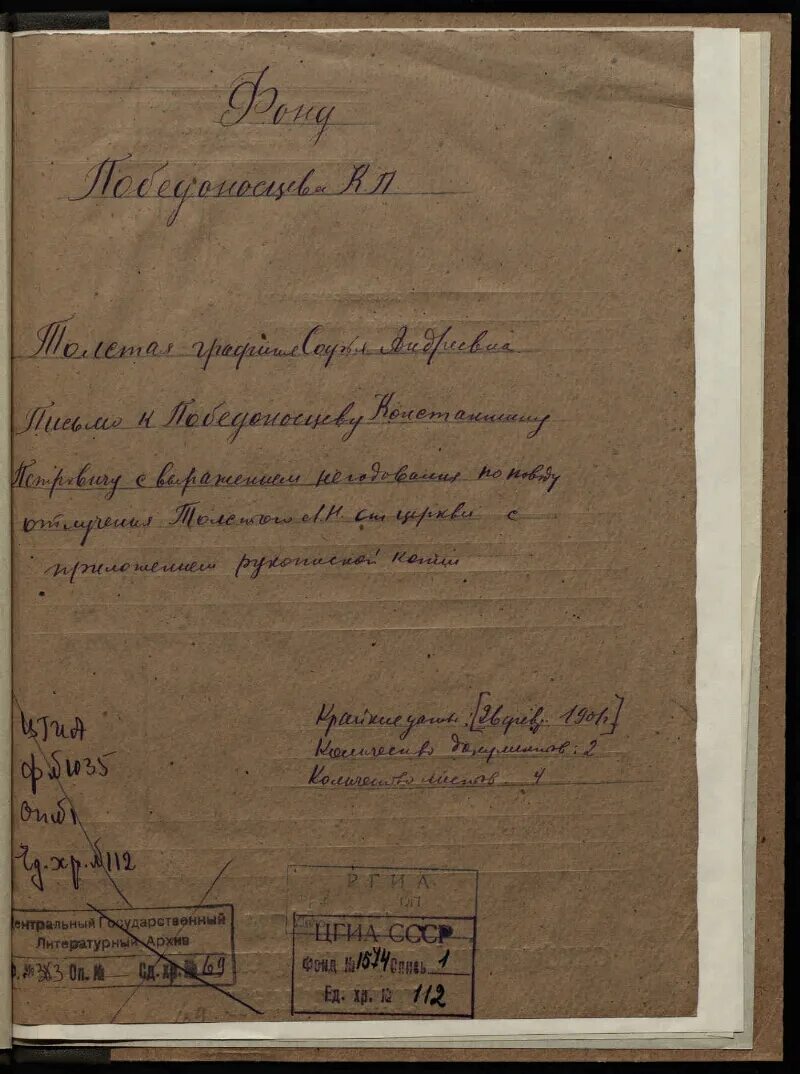 Фонд
Победоносцева К П
Толстая графиня Софья Андреевна
Письмо к Победоносцеву Константину
Петровичу с выражением негодования по поводу
отлучения Толстого Л.Н. от церкви с
приложением рукописной копии
Крайние даты: [26 февр. 1901г]
Количество документов: 2
Количество листов 4
ЦГИА
ф №1035
Оп №1
Ед. хр. №112
Центральный Государственный
Литературный Архив
Ф. №383 Оп. № Ед. хр. № 69
РГИА
ОП
ЦГИА СССР
Фонд № 1574 Опись 1
Ед. хр. № 112